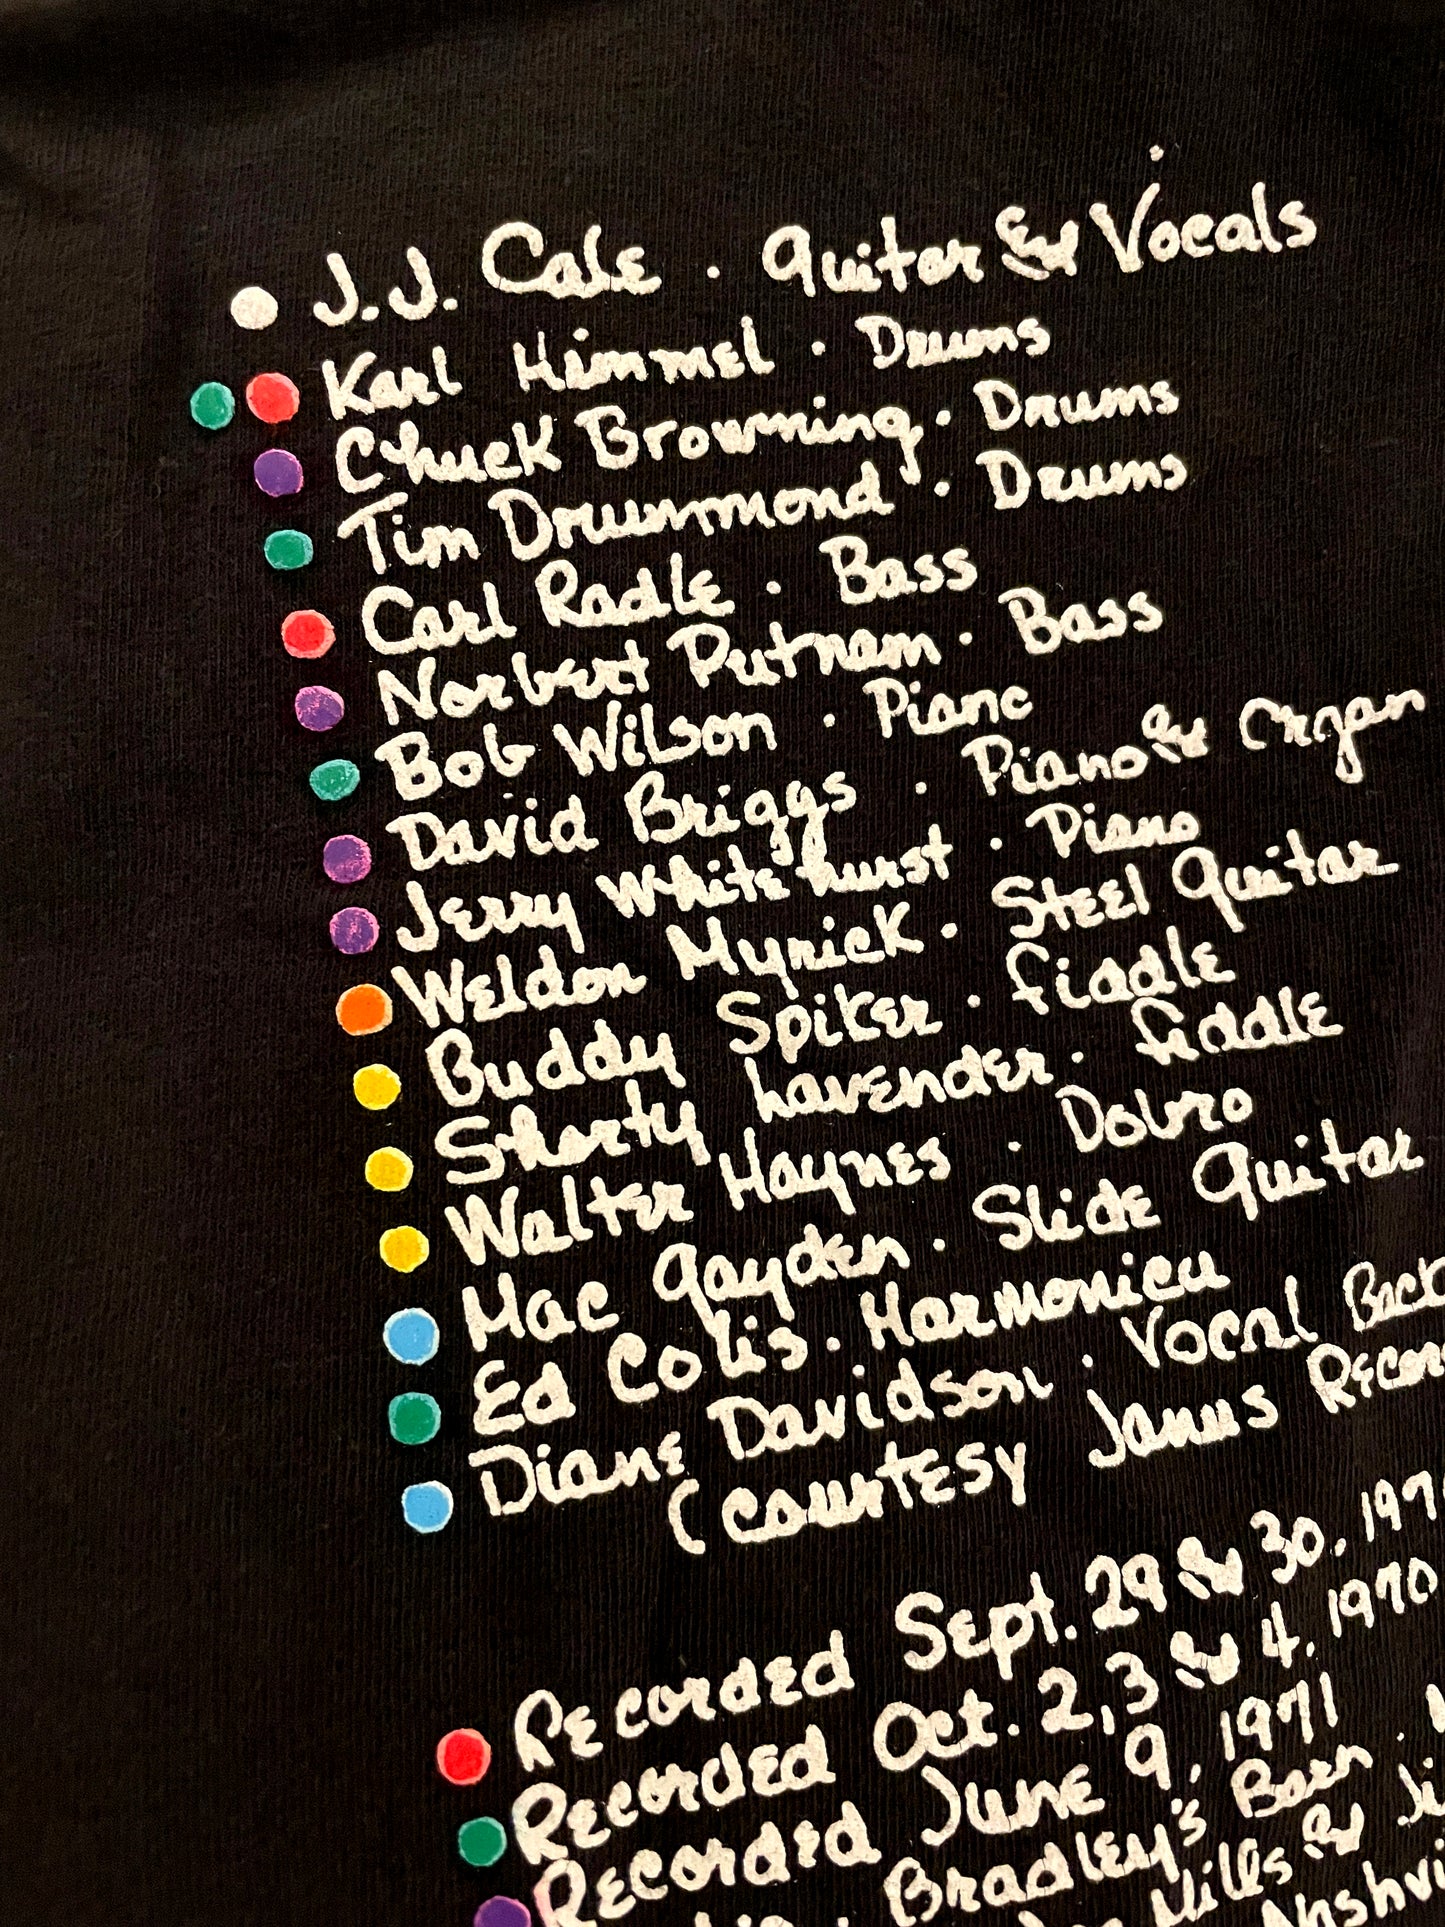 J.J. Cale . Guitar & Vocals
Karl Himmel . Drums
Chuck Browning . Drums
Tim Drummond . Drums
Carl Radle . Bass
Norbert Putnam . Bass
Bob Wilson . Piano
David Briggs . Piano & Organ
Jerry Whitehurst . Piano
Weldon Myrick . Steel Guitar
Buddy Spiker . fiddle
Shorty Lavender . fiddle
Walter Haynes . Dobro
Mac Gayden . Slide Guitar
Ed Colis . Harmonica
Diane Davidson . Vocal Back
(Courtesy Janus Recor
Recorded Sept. 29 & 30, 197
Recorded Oct. 2, 3 & 4, 1970
Recorded June 9, 1971
Bradley's Barn .
Mills & Ji
Nashvi